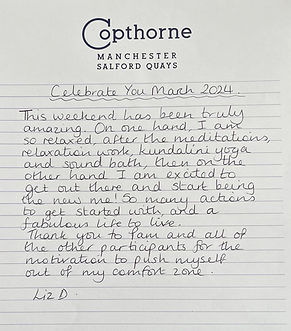 Copthorne
MANCHESTER
SALFORD QUAYS
Celebrate You March 2024.
This weekend has been truly
amazing. On one hand, I am
so relaxed, after the meditations,
relaxation work, kundalini yoga
and sound bath, then on the
other hand I am excited to
get out there and start being
the new me! So many actions
to get started with, and a
fabulous life to live.
Thank you to Pam and all of
the other participants for the
motivation to push myself
out of my comfort zone.
Liz D